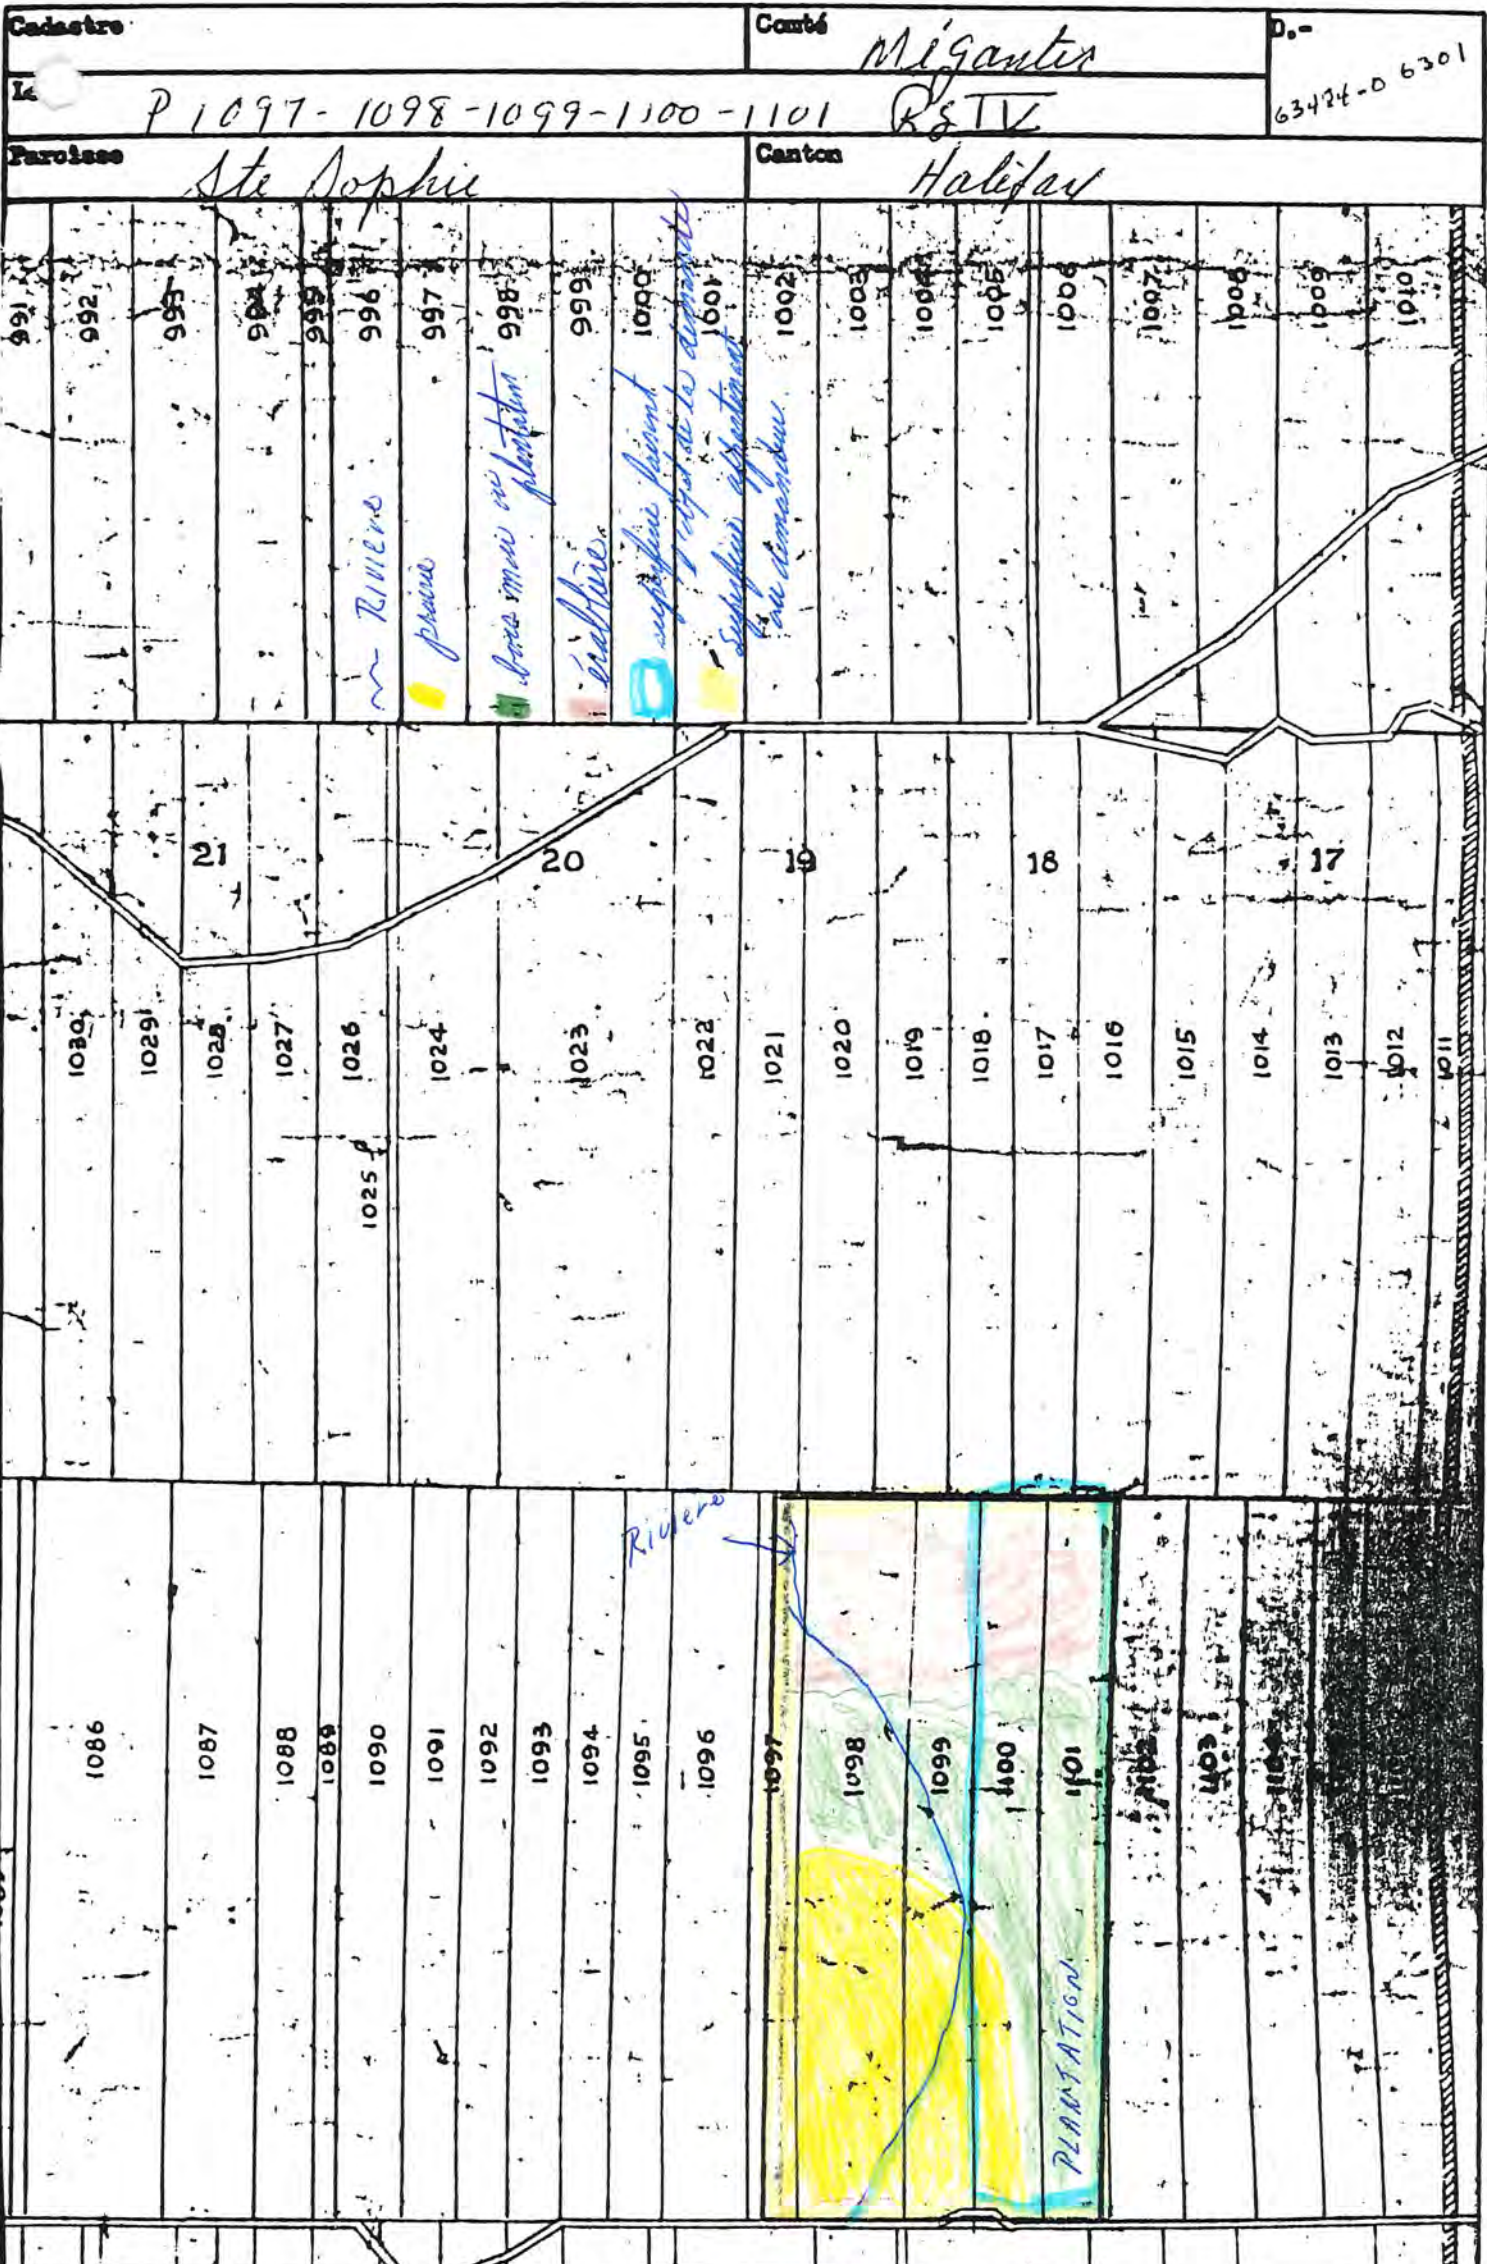 Cadastre
Comté Mégantic
D.-
63424-D 6301
P 1097-1098-1099-1100-1101 Rg IV
Paroisse Ste Sophie
Canton Halifax
991
992
993
994
995
996
997
998
999
1000
1001
1002
1003
1004
1005
1006
1007
1008
1009
1010
~ RIVIERE
prairie
bois mou ou plantation
érablière
superficie faisant
l'objet de la demande
superficie appartenant
au demandeur.
21
20
19
18
17
1030
1029
1028
1027
1026
1025
1024
1023
1022
1021
1020
1019
1018
1017
1016
1015
1014
1013
1012
1011
Riviere
1086
1087
1088
1089
1090
1091
1092
1093
1094
1095
1096
1097
1098
1099
1100
1101
1102
1103
1104
PLANTATION